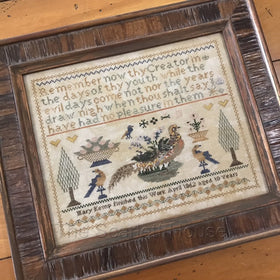 Remember now thy Creator in
the days of thy youth while the
evil days come not nor the years
draw nigh when thou shalt say I
have had no pleasure in them
Mary Kemp finished this Work April aged 10 Years
house